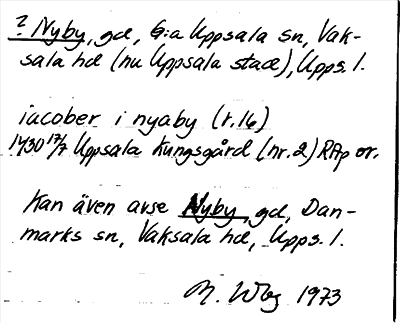 ? Nyby, gd, G:a Uppsala sn, Vak-
sala hd (nu Uppsala stad), Upps. l.
iacober i nyaby (r. 16)
1430 17/7 Uppsala Kungsgård (nr. 2) RAp or.
Kan även avse Nyby, gd, Dan-
marks sn, Vaksala hd, Upps. l.
M. Wbg 1973